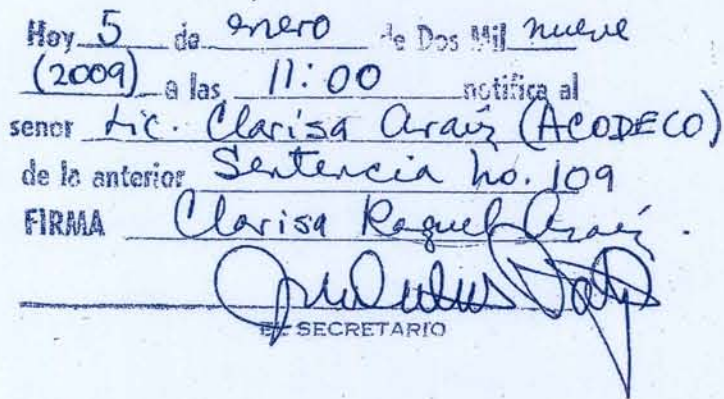 Hoy 5 de enero de Dos Mil nueve
(2009) a las 11:00 notifica al
senor Lic. Clarisa Araúz (ACODECO)
de la anterior Sentencia no. 109
FIRMA Clarisa Raquel Araúz.
EL SECRETARIO